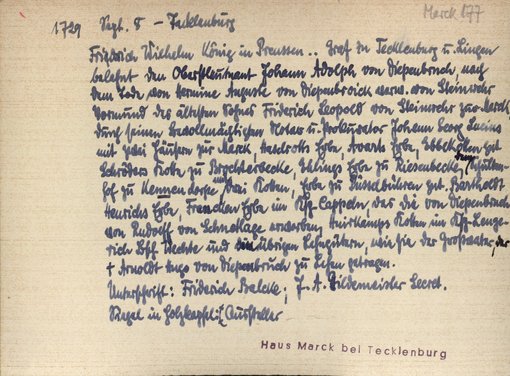 Marck 177
1729 Sept. 8 – Tecklenburg
Friedrich Wilhelm König in Preussen .. Graf zu Tecklenburg u. Lingen
belehnt den Oberstleutnant Johann Adolph von Diepenbroch, nach
dem Tode von Hermine Auguste von Diepenbroick verw. von Steinwehr
Vormund des ältesten Sohns Friderich Leopold von Steinwehr zur Marck,
durch seinen Bevollmächtigten Notar u. Prokurator Johann Georg
mit zwei Häusern zur Marck, Erbe, Erbe, gut
Schröders Kotten zu Brochterbecke, Erbe zu Riesenbeck, Schulten-
hof zu und drei Kotten, Erbe zu gut, Bartholdt
Henrichs Erbe, Erbe im Ksp. Cappeln, das die von Diepenbroch
von Rudolf von Schnetlage erworben, Kotten im Ksp. Lenge-
rich Bsch. Aechte und den übrigen Lehngütern, wie sie der Grossvater, der
† Arnoldt von Diepenbruch zu Lehen getragen.
Unterschrift: Friderich ; J. A. Bildemeister Secret.
Siegel in Holzkapsel: Aussteller
Haus Marck bei Tecklenburg